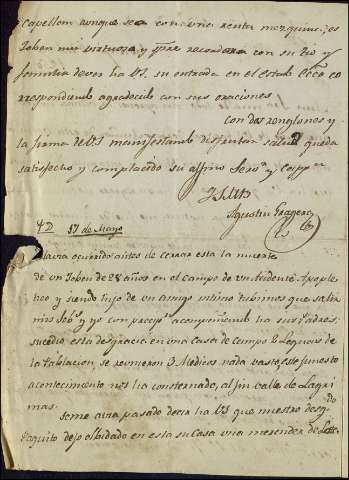 Capellan aunque sea con una renta mezquina; es
Joben mui virtuoso y pre recordara con su tio y
familia dever ha VS. su entrada en el estado Ecco co
rrespondiendo agradecido con sus oraciones.
Con dos renglones y
la firma de VS manifestando disfrutan salud queda
satisfecho y complacido su affmo Servor y Cappn
Agustin Fragero
P.D. 17 de Mayo
Havia ocurrido antes de cerrar esta la muerte
de un Joben de 28 años en el campo de un acidente Apople
tico y siendo hijo de un amigo intimo tubimos que salir
mis Sobs y yo con acompañando ha sus Padres;
sucedio esta desgracia en una casa de campo 2 leguas de
la Poblacion, se reunieron 3 Medicos nada vasto, este funesto
acontecimiento nos ha consternado, al fin valle de Lagri
mas.
Seme avia pasado decir ha VS que nuestro
Paquito dejo olbidado en esta su Casa una